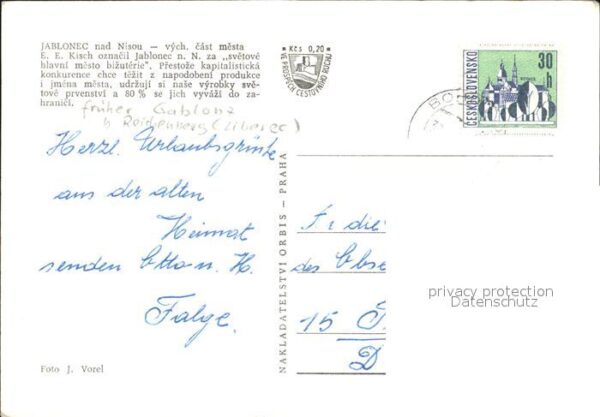 JABLONEC nad Nisou — vých. část města
E. E. Kisch označil Jablonec n. N. za „světové
hlavní město bižutérie". Přestože kapitalistická
konkurence chce těžit z napodobení produkce
i jména města, udržují si naše výrobky svě-
tové prvenství a 80 % se jich vyváží do za-
hraničí.
früher Gablonz
b Reichenberg (Liberec)
Kčs 0,20
VE PROSPĚCH CESTOVNÍHO RUCHU
30 h
ČESKOSLOVENSKO
BO
Herzl. Urlaubsgrüße
aus der alten
Heimat
senden Otto u. H.
NAKLADATELSTVÍ ORBIS — PRAHA
die
des Obse
15
D
privacy protection
Datenschutz
Foto J. Vorel